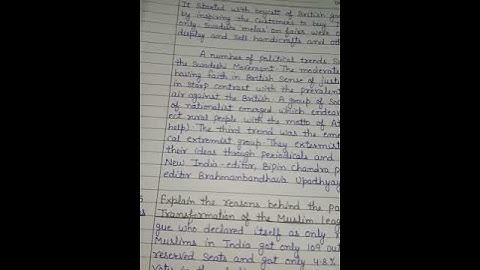 It started with boycott of British go
by inspiring the customers to buy I
only. Swadesi melas or fairs were o
display and sell handicrafts and oth
A number of political trends S
the Swadeshi Movement. The moderate
having faith in British Sense of justi
in starp contrast with the prevalent
air against the British. A group of So
of nationalist emerged which endeav
ect rural people with the motto of At
help). The third trend was the eme
cal extremist group. They extermist
their ideas through periodicals and
New India-editor, Bipin Chandra P
editor Brahmanbandhava Upadhyay
Explain the reasons behind the Pa
Transformation of the Muslim leag
gue who declared itself as only
Muslims in India got only 109 out
reserved Seats and got only 4.8%